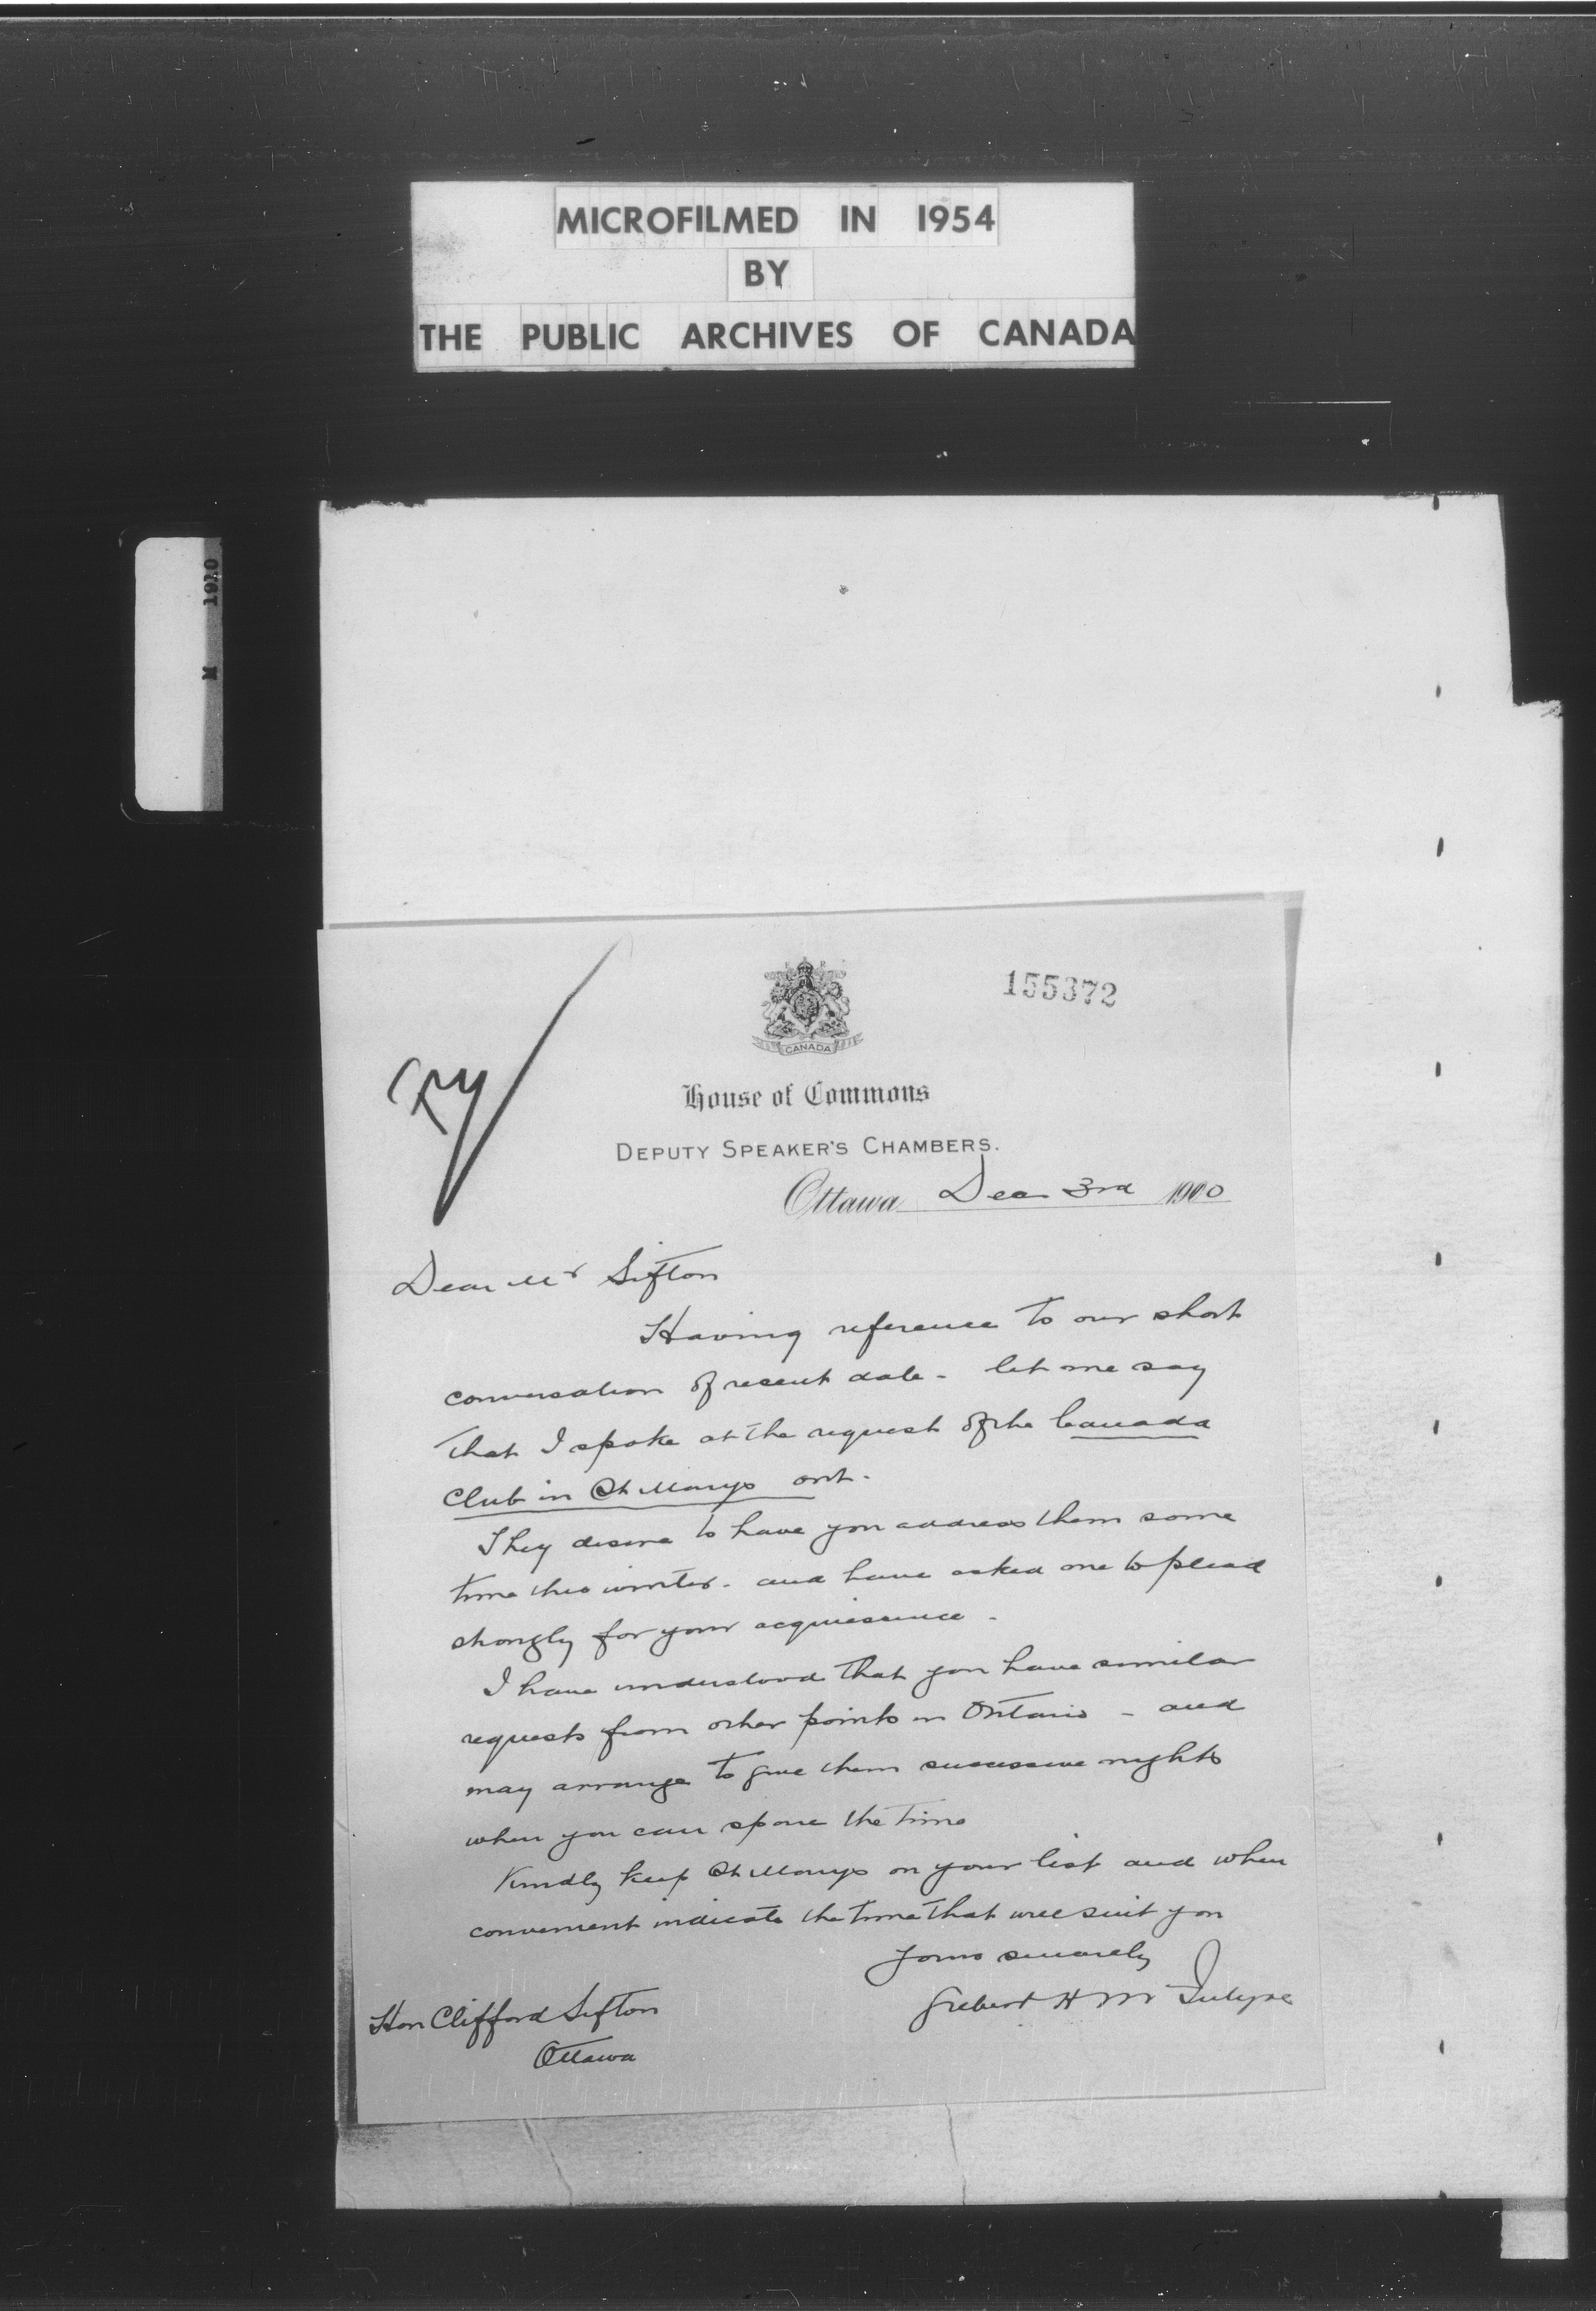 MICROFILMED IN 1954
BY
THE PUBLIC ARCHIVES OF CANADA
M 1910
155372
CANADA
House of Commons
DEPUTY SPEAKER'S CHAMBERS.
Ottawa Dec 3rd 1900
Dear Mr Sifton
Having reference to our short
conversation of recent date - let me say
that I spoke at the request of the Canada
Club in St Marys Ont.
They desire to have you address them some
time this winter - and have asked me to plead
strongly for your acquiescence -
I have understood that you have similar
requests from other points in Ontario - and
may arrange to give them successive nights
when you can spare the time
Kindly keep St Marys on your list and when
convenient indicate the time that will suit you
Yours sincerely
Gilbert H McIntyre
Hon Clifford Sifton
Ottawa